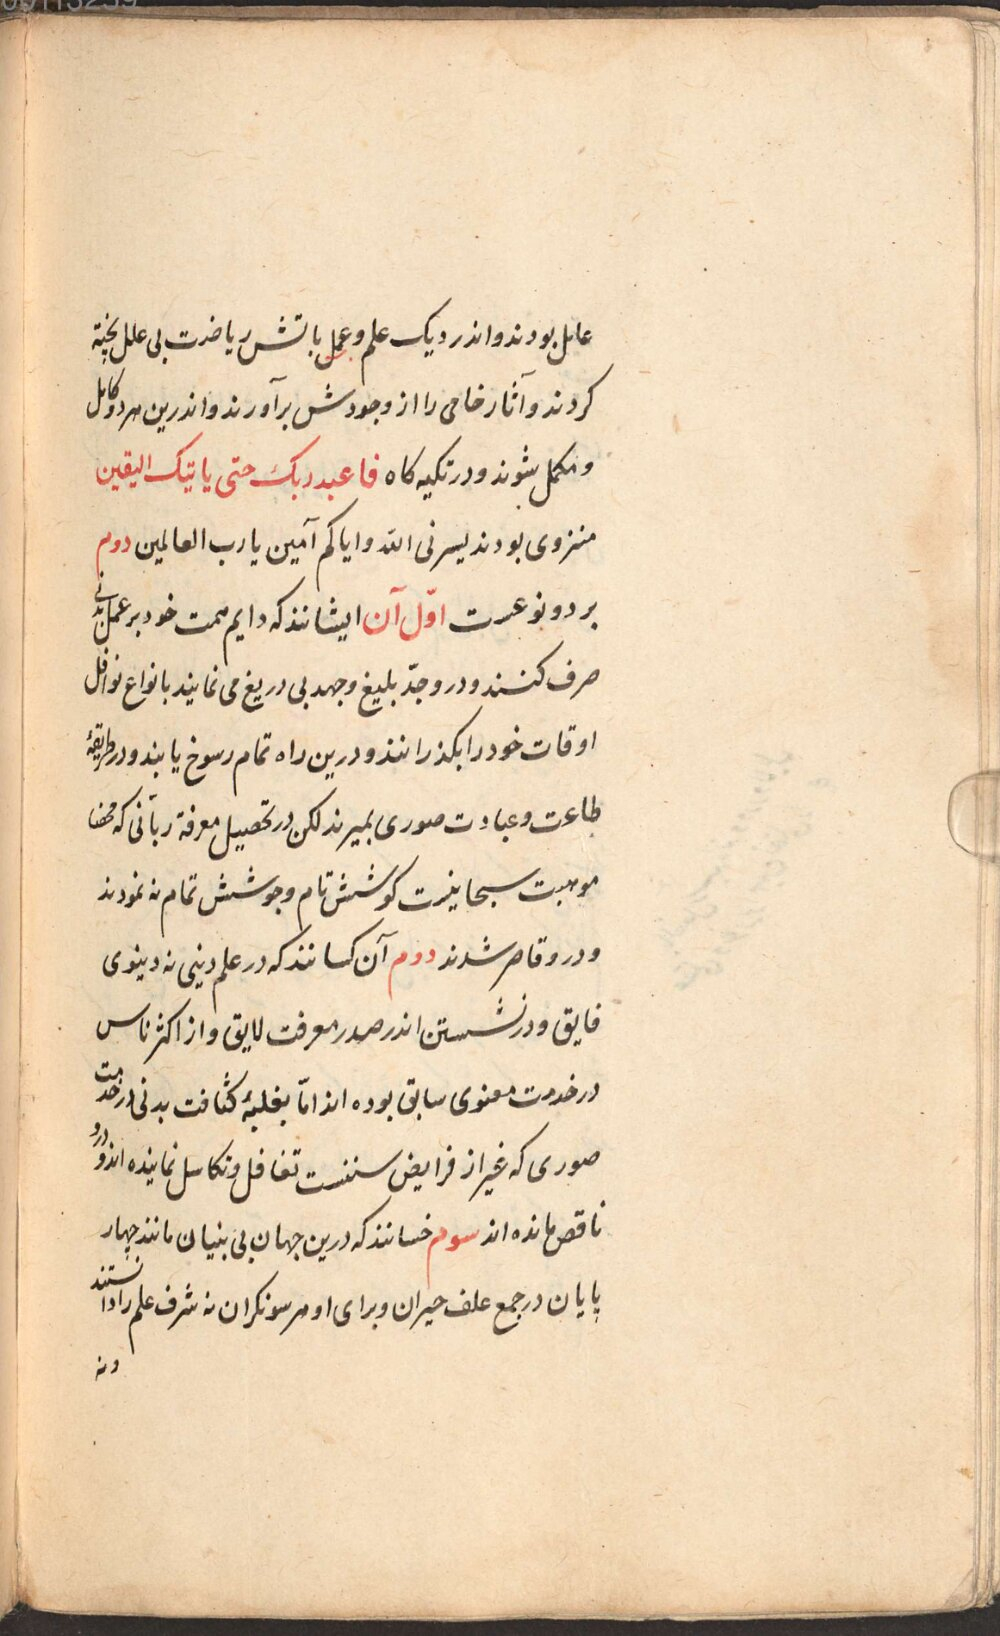 عامل بودند و اندر دیک علم و عمل باتش ریاضت بی علل پخته
کردند و آثار خامی را از وجودش برآورند و اندرین هر دو کامل
و مکمل شوند و در تکیه کاه فاعبد ربک حتی یاتیک الیقین
منزوی بودند یسرنی الله وایاکم آمین یا رب العالمین دوم
بر دو نوعست اوّل آن ایشانند که دایم همت خود بر عمل بدنی
صرف کنند و درو جدّ بلیغ و جهد بی دریغ می نمایند بانواع نوافل
اوقات خود را بکذرانند و درین راه تمام رسوخ یابند و در طریقهٔ
طاعت و عبادت صوری بمیرند لکن در تحصیل معرفة ربآنی که محض
موهبت سبحانیست کوشش تام و جوشش تمام نه نمودند
و درو قاصر شدند دوم آن کسانند که در علم دینی نه دینوی
فایق و در نشستن اندر صدر معرفت لایق و از اکثر ناس
در خدمت معنوی سابق بوده اند امّا بغلبهٔ کثافت بدنی در خدمت
صوری که غیر از فرایض سننست تغافل و تکاسل نماینده اند و درو
ناقص مانده اند سوم خسانند که درین جهان بی بنیان مانند چهار
پایان در جمع علف حیران و برای او هر سو نکران نه شرف علم را دانستند
و نه